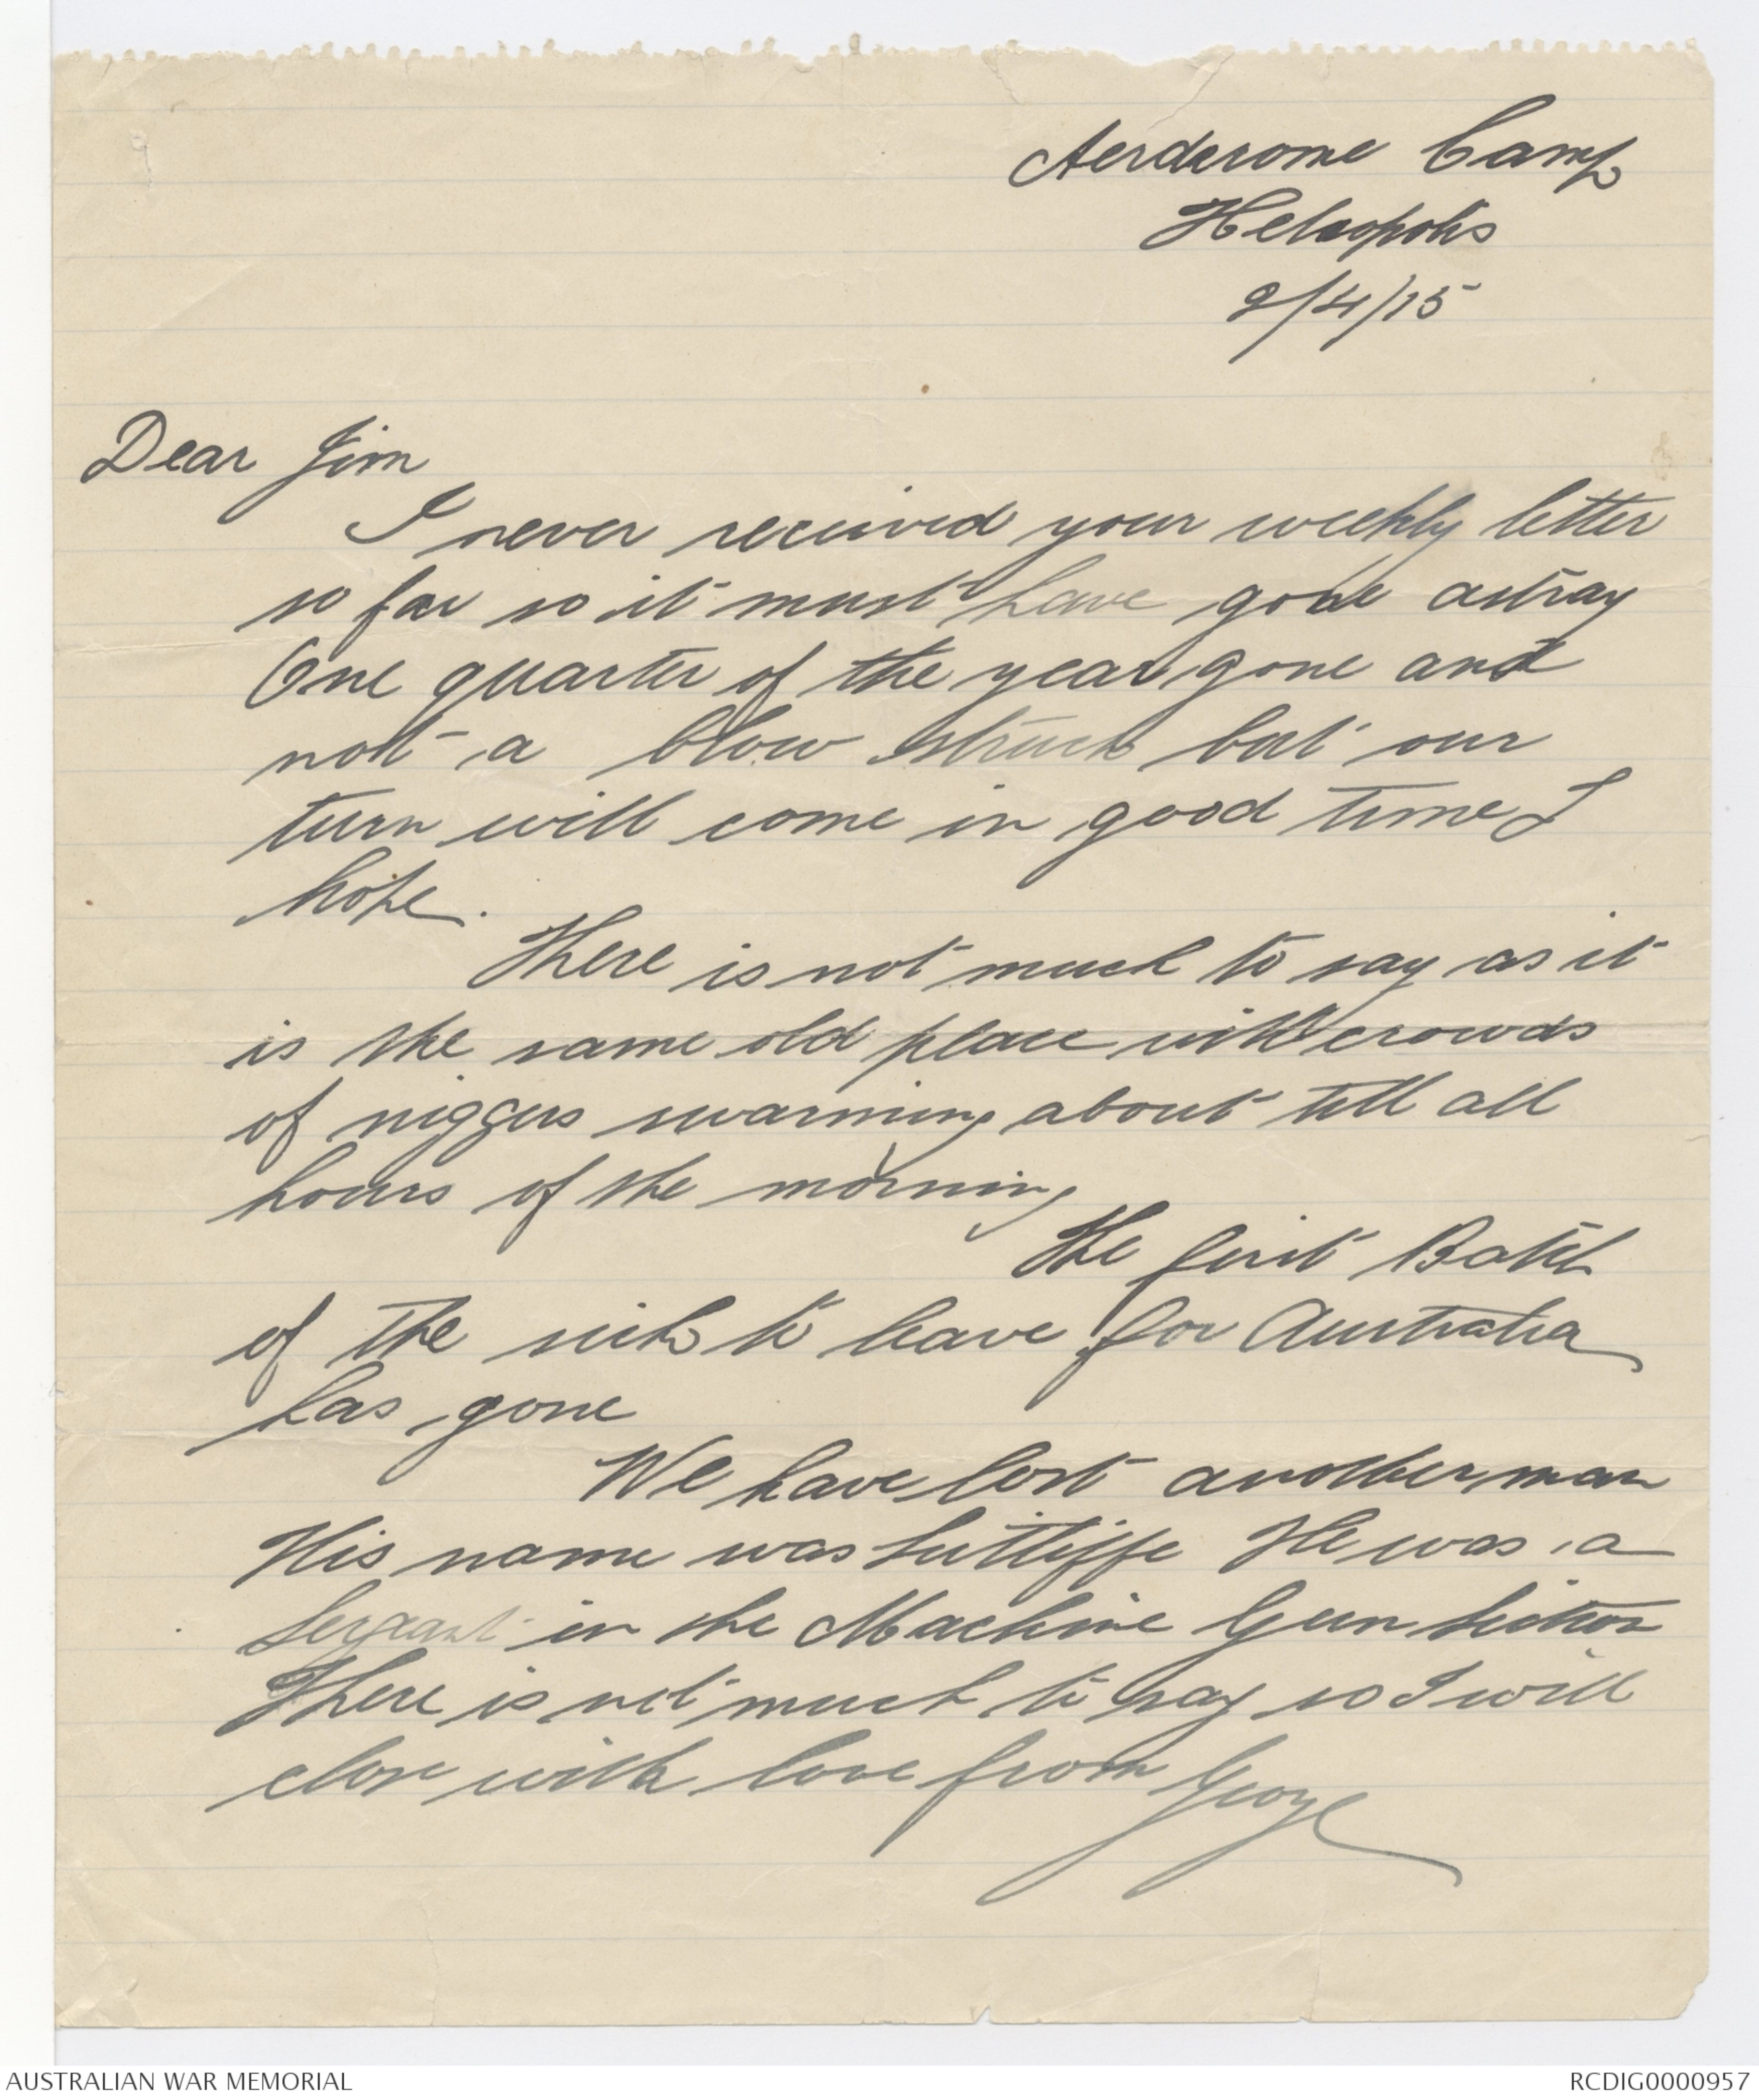 Aerderome Camp
Heliopolis
2/4/15
Dear Jim
I never received your weekly letter
so far so it must have gone astray
One quarter of the year gone and
not a blow struck but our
turn will come in good time I
hope.
There is not much to say as it
is the same old place with crowds
of niggers swarming about till all
hours of the morning
The first Batch
of the sick to leave for Australia
has gone
We have lost another man
His name was Sutliffe He was a
Sergeant in the Machine Gun Section
There is not much to say so I will
close with love from George
AUSTRALIAN WAR MEMORIAL
RCDIG0000957